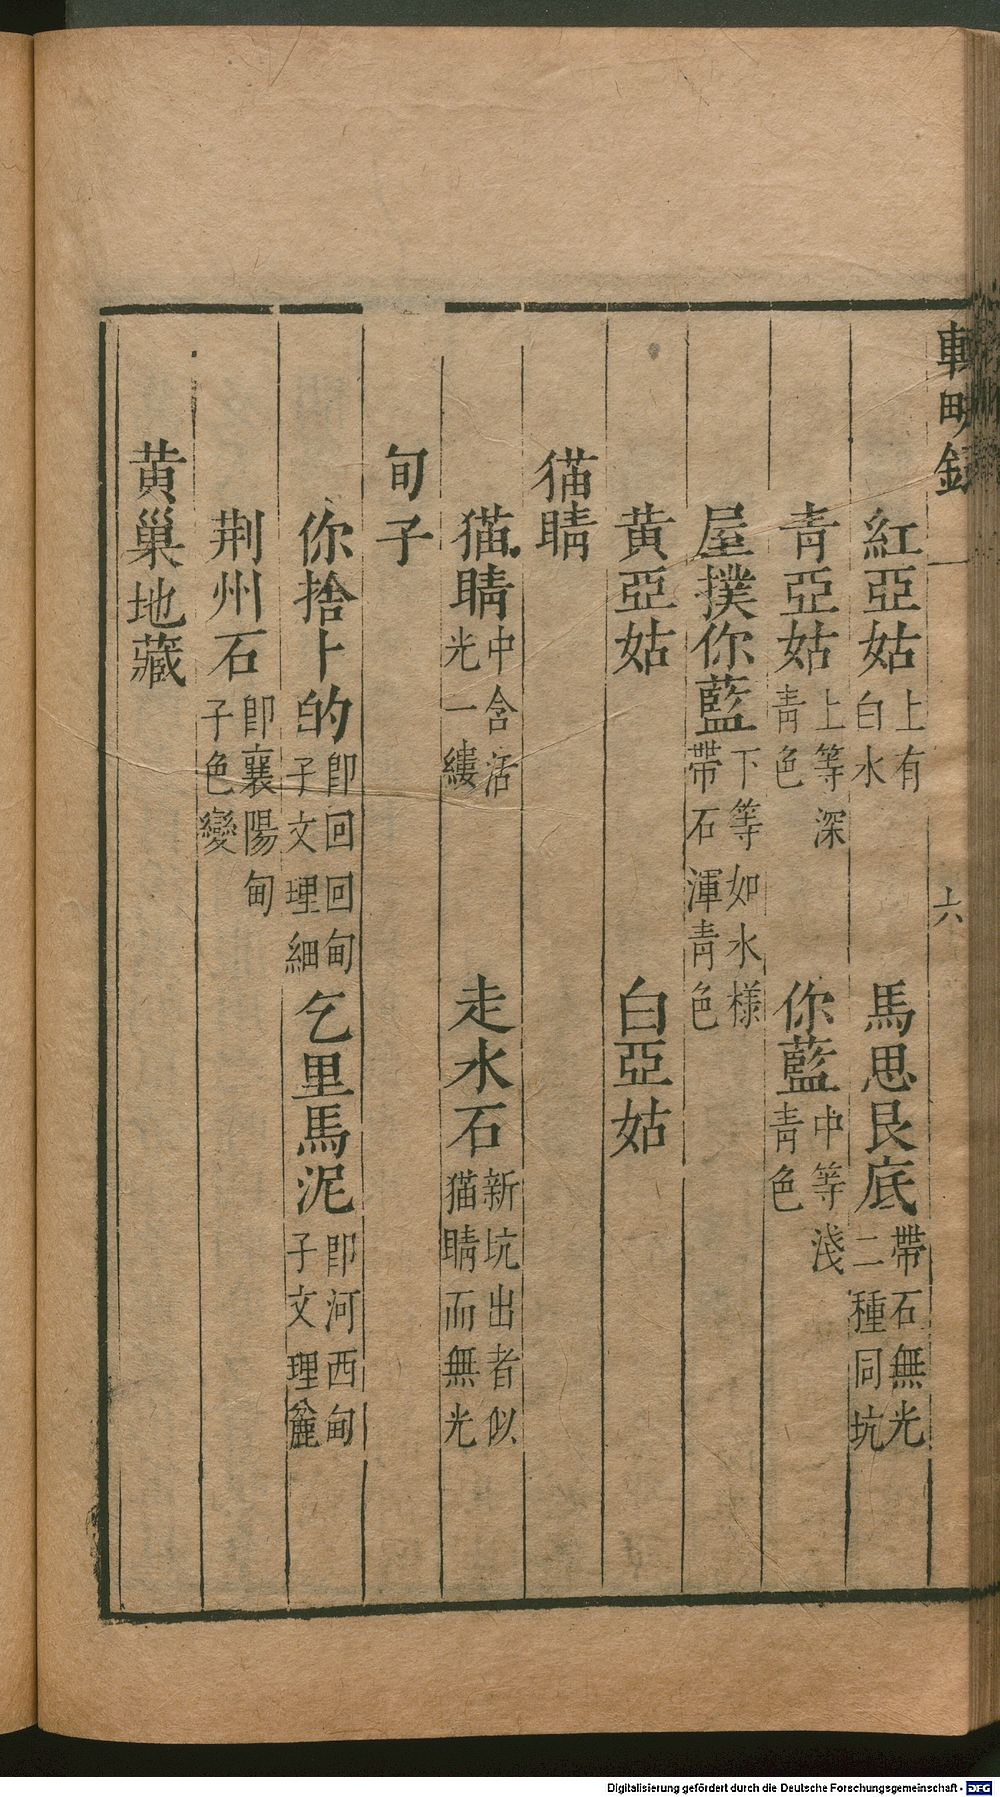 紅亞姑上有白水　馬思艮底帶石無光二種同坑
青亞姑上等深青色　你藍中等淺青色
屋撲你藍下等如水樣帶石渾青色
黃亞姑　白亞姑
猫睛
猫睛中含活光一縷　走水石新坑出者似猫睛而無光
甸子
你捨卜的卽回回甸子文理細　乞里馬泥卽河西甸子文理麄
荆州石卽襄陽甸子色變
黃巢地藏
六
Digitalisierung gefördert durch die Deutsche Forschungsgemeinschaft - DFG